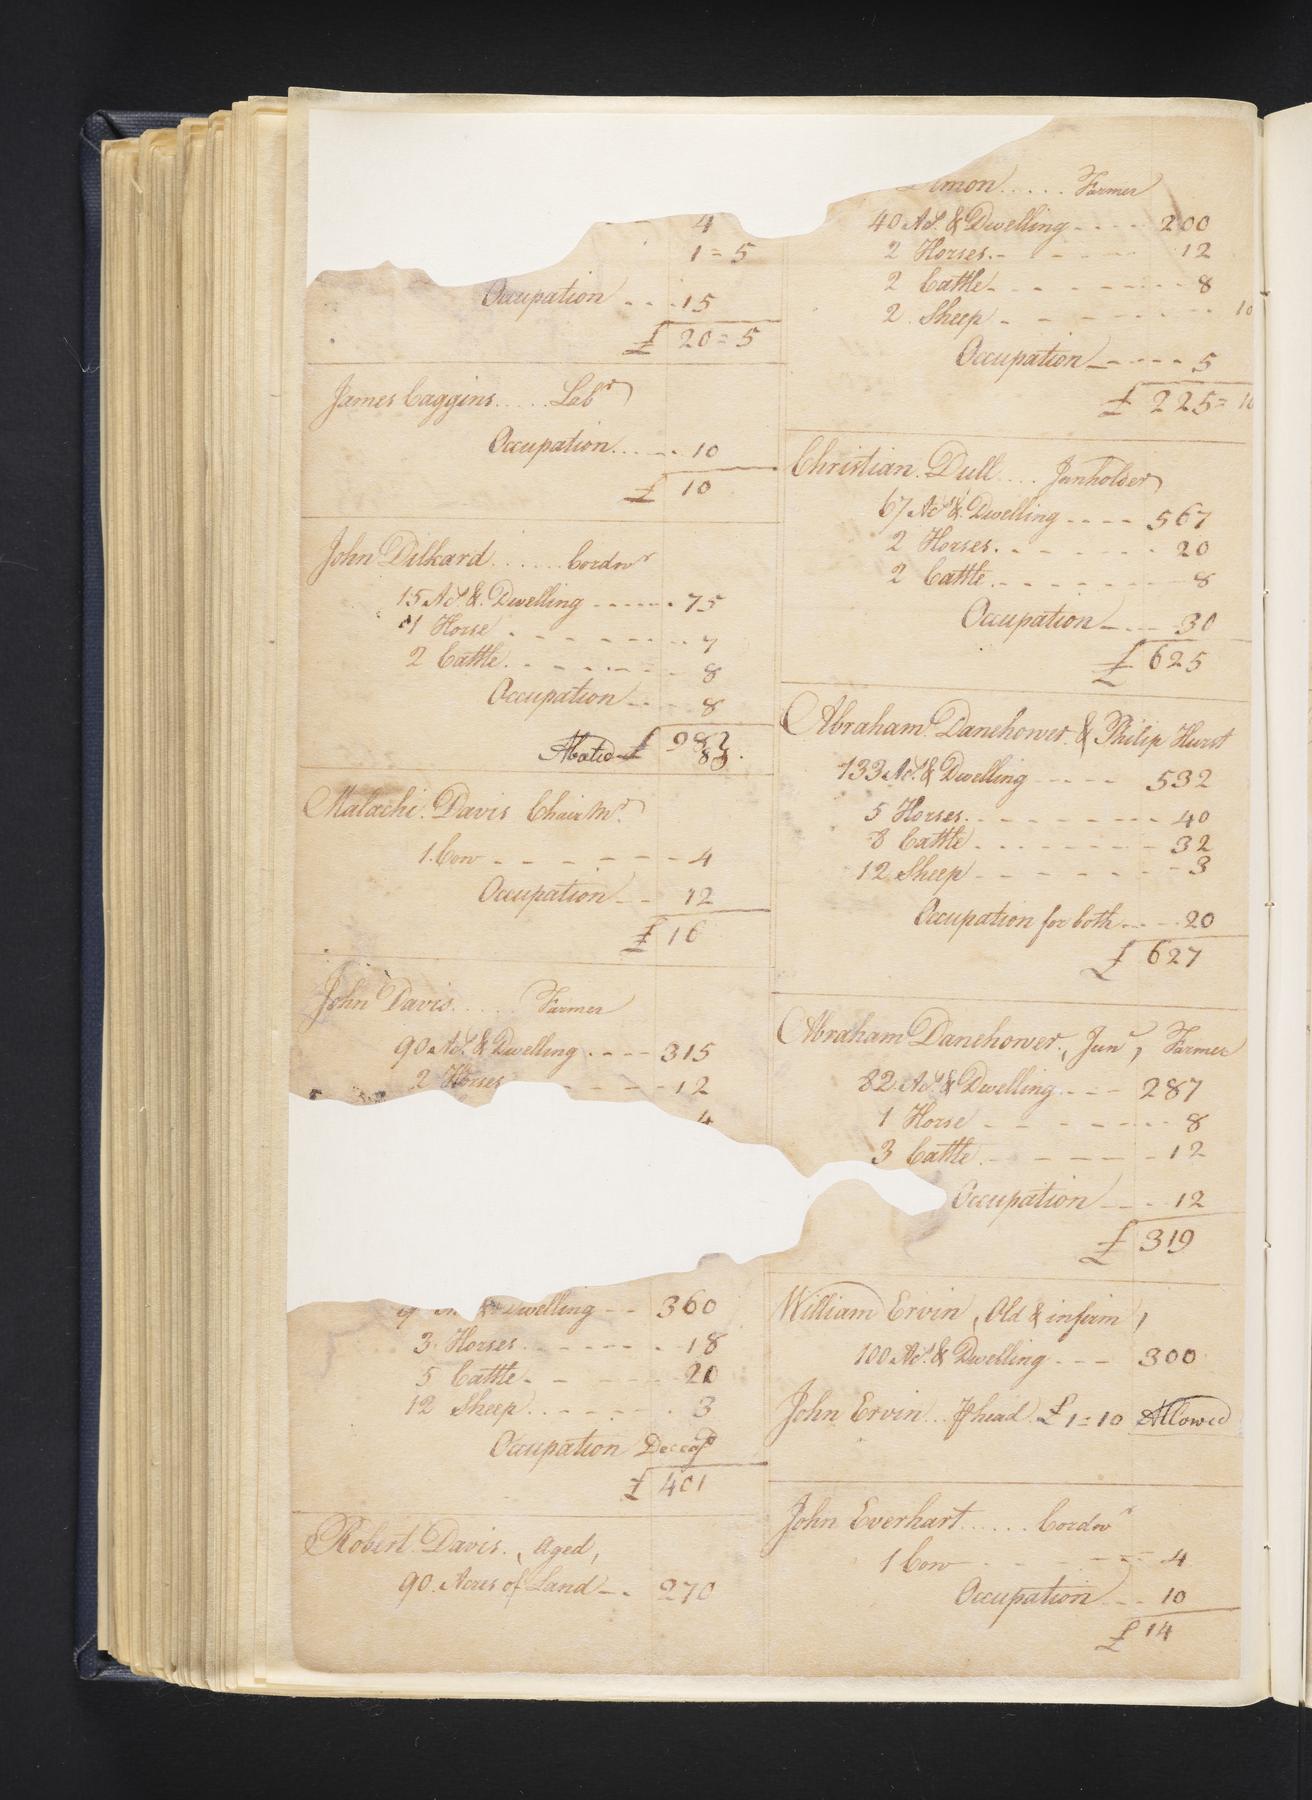 4
1 = 5
Occupation . . . 15
£ 20 = 5
James Caggins . . . . . Labr
Occupation . . . . . 10
£ 10
John Dilkard . . . . . . Cordwr
15 As. & Dwelling - - - - - - 75
1 Horse . - - - - - - - 7
2 Cattle . - - - - - - 8
Occupation - . - 8
Abated £ 98
83.
Malachi Davis Chair Mr.
1 Cow - - - - - - 4
Occupation - - 12
£ 16
John Davis . . . . . Farmer
90 As. & Dwelling - - - - 315
2 Horses - - - - 12
4
& Dwelling - - 360
3 Horses . - - - - - . 18
5 Cattle - - - - 20
12 Sheep . . - - - - . 3
Occupation Deceasd
£ 401
Robert Davis, aged,
90 Acres of Land - . 270
. . . . . Farmer
40 As. & Dwelling - - - - 200
2 Horses . - - - - - 12
2 Cattle - - - - - - - - 8
2 Sheep - - - - - - - 10
Occupation - - - - - 5
£ 225 = 10
Christian Dull . . . . Innholder
67 As. & Dwelling - - - - 567
2 Horses . - - - - - - 20
2 Cattle . - - - - - - 8
Occupation - . - - 30
£ 625
Abraham Danehower & Philip Hurst
133 As. & Dwelling - - - - 532
5 Horses . - - - - - - - - 40
8 Cattle . - - - - - - - 32
12 Sheep - - - - - - - - 3
Occupation for both . . - - 20
£ 627
Abraham Danehower, Junr, Farmer
82 As. & Dwelling - - - 287
1 Horse - - - - - - - 8
3 Cattle . - - - - - - 12
Occupation - - . - 12
£ 319
William Ervin, Old & infirm,
100 As. & Dwelling - - - 300
John Ervin . . . head £ 1 = 10 Allowed
John Everhart . . . . . . Cordwr
1 Cow - - - - - - - 4
Occupation - - - 10
£ 14